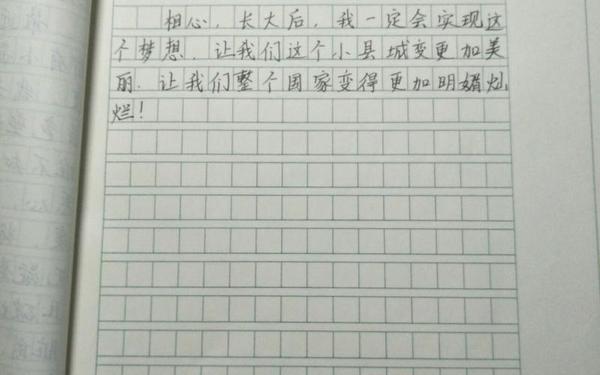 相心，长大后，我一定会实现这
个梦想，让我们这个小县城变更加美
丽．让我们整个国家变得更加明媚灿
烂！